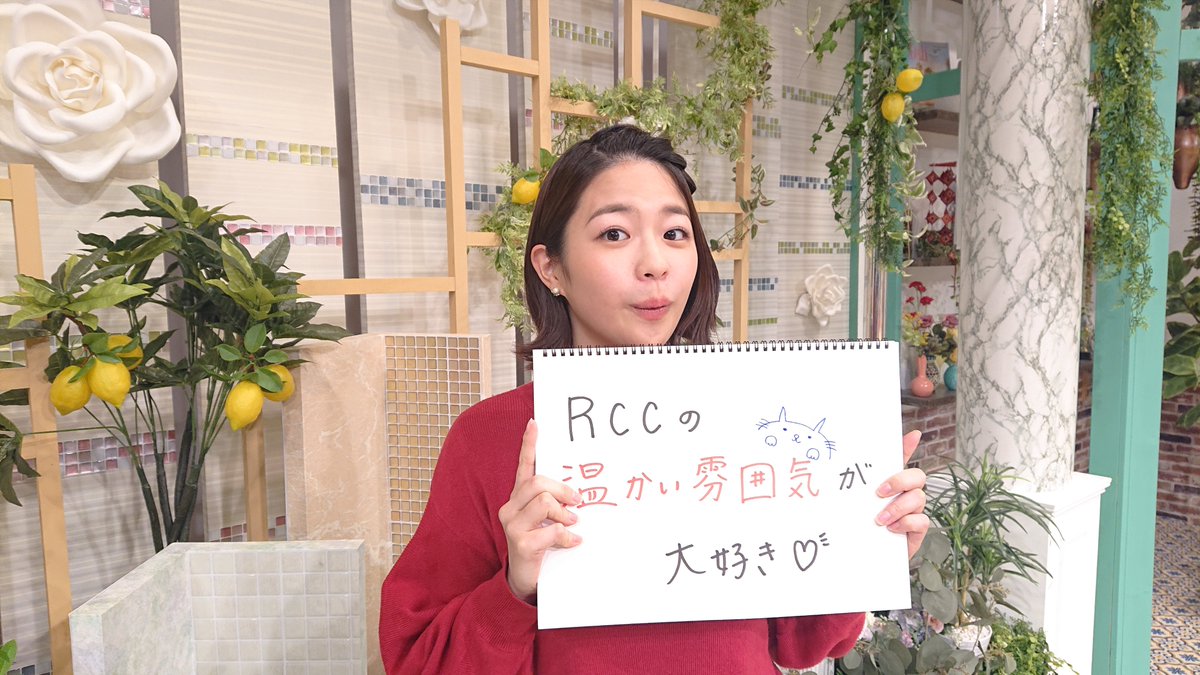 RCCの
温かい雰囲気が
大好き♡